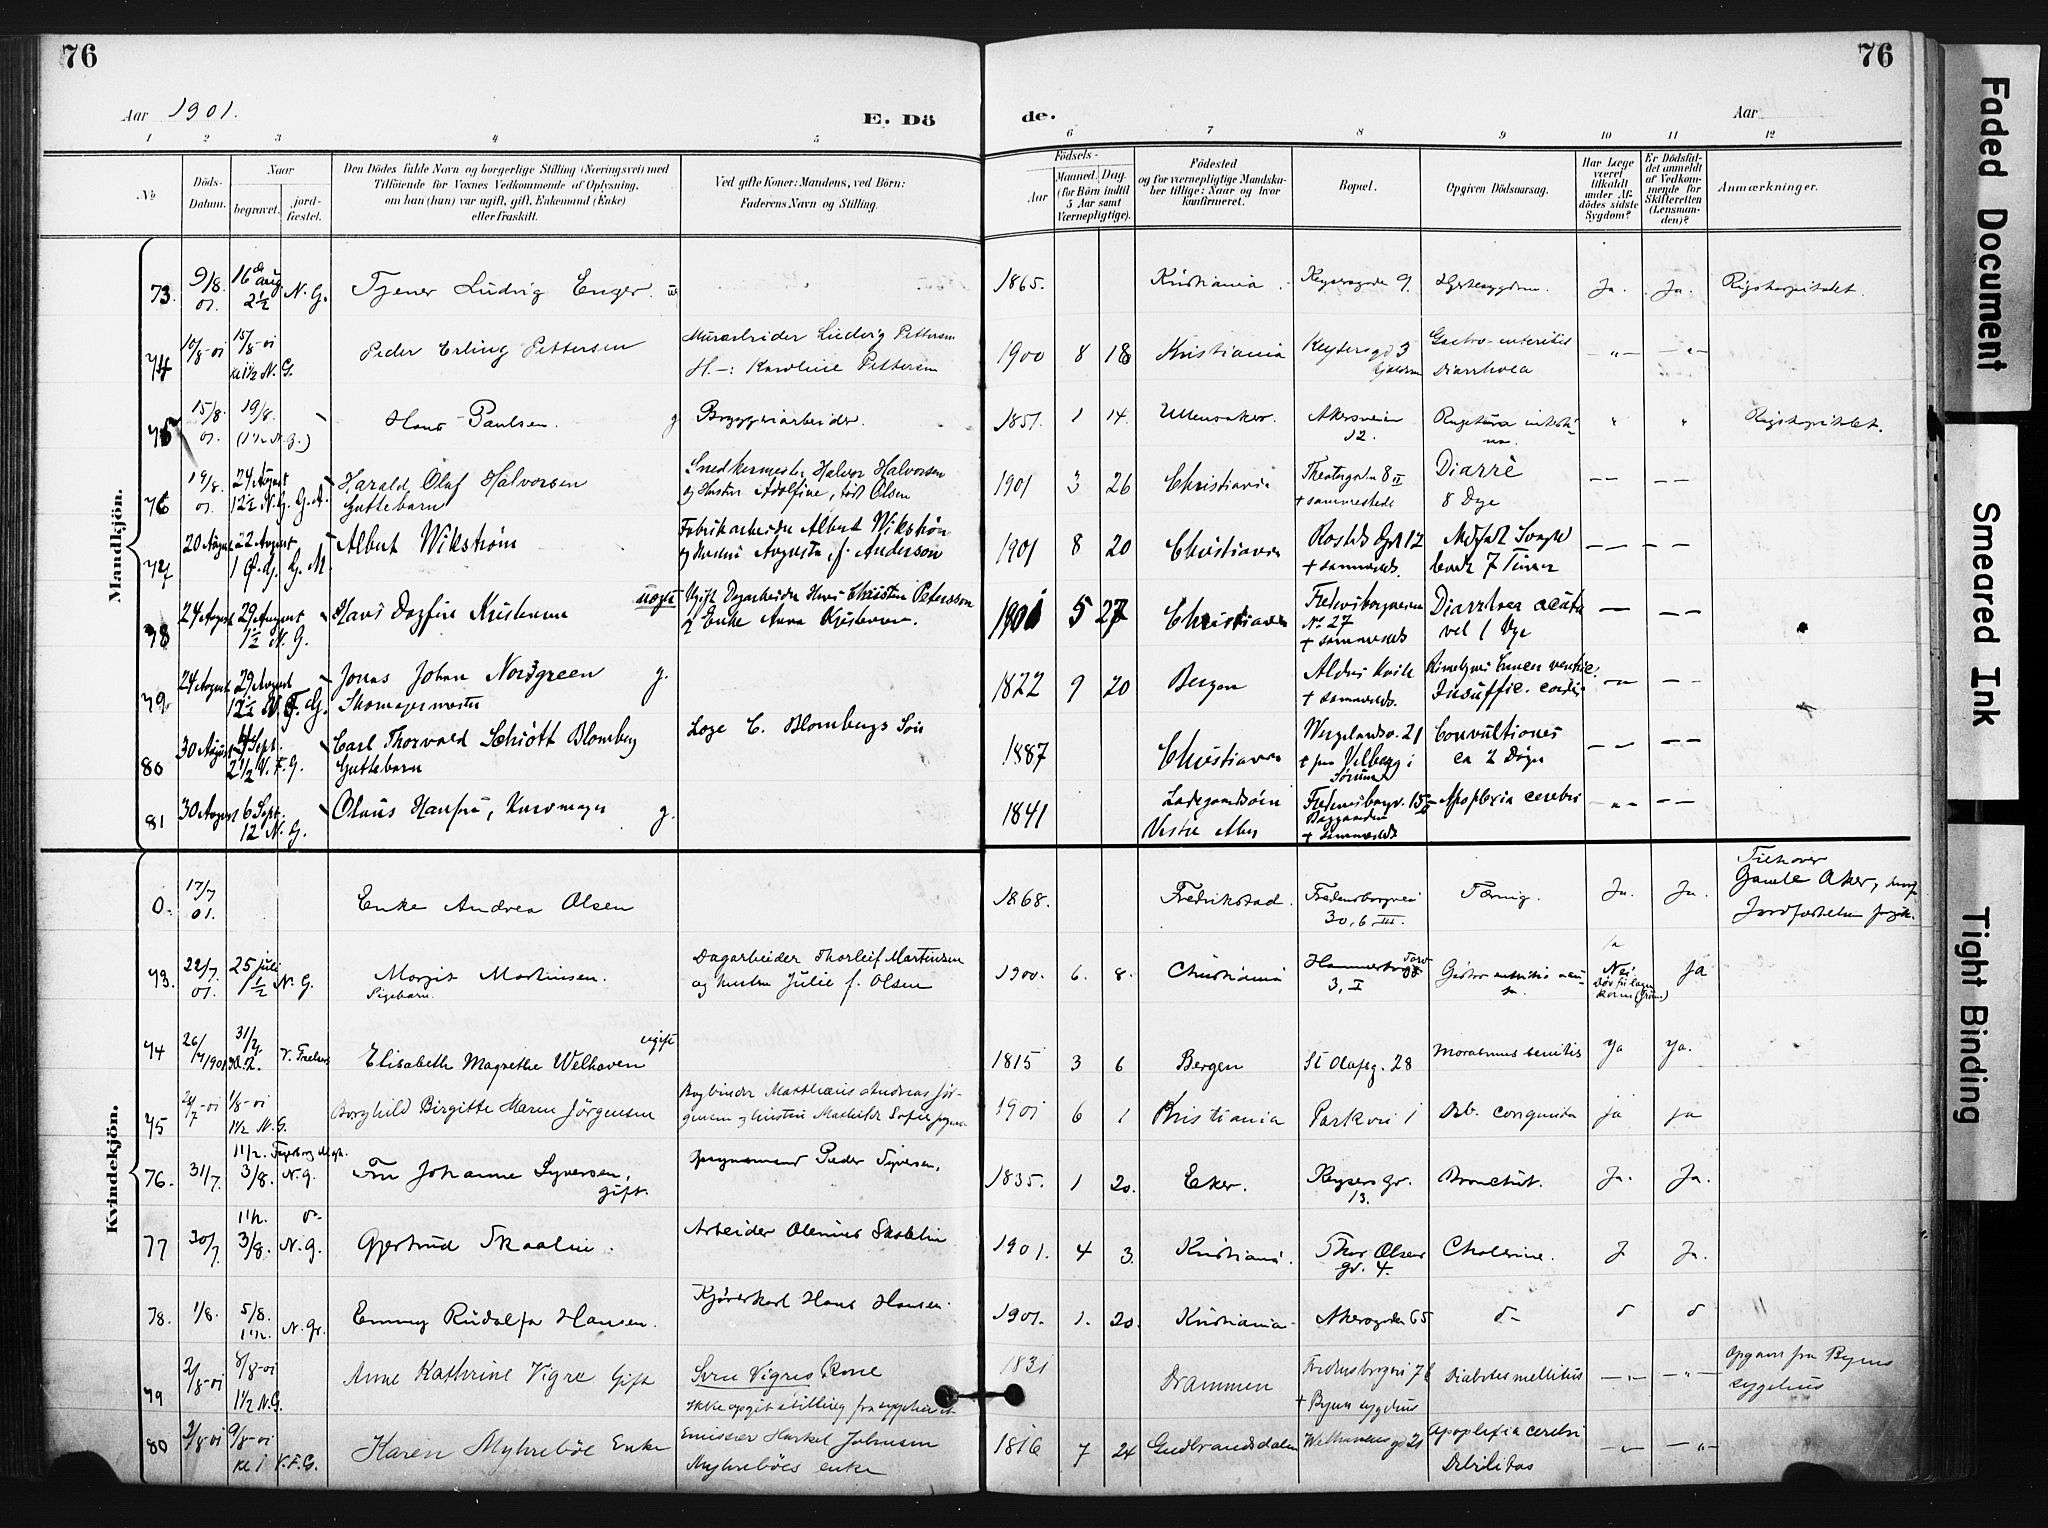 76
76
Aar 1901.
E. Dö
de.
Aar
1 2 3 4 5 6 7 8 9 10 11 12
No
Döds-Datum.
Naar
begravet.
jord-fæstet.
Den Dödes fulde Navn og borgerlige Stilling (Næringsvei) med
Tilföiende for Voxnes Vedkommende af Oplysning,
om han (hun) var ugift, gift, Enkemand (Enke)
eller fraskilt.
Ved gifte Koner: Mandens, ved Börn:
Faderens Navn og Stilling.
Födsels-
Aar
Maaned. Dag.
(for Börn indtil
5 Aar samt
Værnepligtige).
Födested
og for værnepligtige Mandska-
ber tillige: Naar og hvor
konfirmeret.
Bopæl.
Opgiven Dödsaarsag.
Har Læge
været
tilkaldt
under Af-
dödes sidste
Sygdom?
Er Dödsfal-
det anmeldt
af Vedkom-
mende for
Skifteretten
(Lensman-
den)?
Anmærkninger.
Mandkjön.
73. 9/8 01. 16de aug. 2½ N. G. Tjener Ludvig Enger. 1865. Kristiania. Keysersgaden 9. Hjertesygdom. Ja. Ja. Rigshospitalet.
74 10/8-01 15/8-01 kl 1½ N. G. Peder Erling Pettersen Murarbeider Ludvig Pettersen
H.-: Karoline Pettersen 1900 8 18 Kristiania Keysersgd 3 Gastro-enteritis
Diarrhoea -"- -"-
75 15/8. 01. 19/8. (1½ N. G.) Hans Paulsen. g Bryggeriarbeider. 1851. 1 14. Ullensaker. Akersveien
12. Ruptura intesti-
na. " " Rigshospitalet.
76 19/8. 01. 24 August 12½ N. G. Harald Oluf Halvorsen
Guttebarn Snedkermester Halvor Halvorsen
og Hustru Adolfine, född Olsen 1901 3 26 Christiania Theatergaden 8 II
+ sammesteds Diarrè
8 Dge -- --
77 20 August 22 August 1 Albert Wikström Fabrikarbeider Albert Wikström
og Hustru Augusta f. Anderson 1901 8 20 Christiania 12
+ sammesteds. Medfødt Svagh
7 Timer -- --
78 24 August 29 August 1½ N. G. Hans Dagfin Kristensen Ugift Dagarbeider Hans Christian Petersson
og Enke Anna Kristensen. 1901 5 27 Christiania Fredensborgveien
No 27
+ sammesteds Diarrhoea acuta
vel 1 Dge -- --
79 24 August 29 August 12½ Jonas Johan Nordgreen g.
Skomagermester 1822 9 20 Bergen
+ sammesteds. Insuffic. cordis -- --
80 30 August 4 Sept. 2½ V. F. G. Carl Thorvald Schiött Blomberg
Guttebarn Loge C. Blombergs Sön 1887 Christiania Wergelandsv. 21
+ paa i
Sörum Convultiones
ca 2 Döge -- --
81 30 August 6 Sept. 12 N. G. Olaus Hansen, Kurvmager g. 1841 Ladegaardsöen
Vestre Aker Fredensborgv. 15
Baggaarden
+ sammesteds Apoplexia cerebri -"- --
Kvindekjön.
0. 17/7 01. Enke Andrea Olsen 1868. Fredrikstad. Fredensborgveien
30, 6, III. Tæring. Ja. Ja. Gamle Aker, hvorfra
Jordfæstelsen
73. 22/7 01. 25 juli 1½ N. G. Margit Martinsen.
Pigebarn. Dagarbeider Thorleif Martinsen
og hustru Julie f. Olsen 1900. 6. 8. Christiania
3, I Nei ja
74 26/7 1901 31/7 V. Frelsers Elisabeth Magrethe Welhaven ugift 1815 3 6 Bergen St Olafsg. 28 Marasmus senilis ja ja.
75 1/8-01 1½ N. G. Borghild Birgitte Maren Jörgensen Bogbinder Matthæus Andreas Jör-
gensen og hustru Mathilde Sofie 1901 6 1 Kristiania Parkvei 1 Deb. congenita ja ja
76. 31/7. 1½. 3/8. N. G. Fru Johanne Syversen,
gift. Peder Syversen. 1835. 1 20. Eker. Keysers gr.
13. Bronchit. Ja. Ja.
77 30/7 1½. 3/8. N. G. Gjertrud Skaalin. Arbeider Olenius Skolelin 1901. 4 3. Kristiania. Thor Olsens
gr. 4. Cholerine. J Ja.
78. 1/8. 5/8. 1½. N. Gr. Emmy Rudolfa Hansen. Kjörerkarl Hans Hansen. 1901. 1. 20. Kristiania- Akersgaden 65
79 2/8-01 8/8-01 1½ N.G. Anne Kathrine Vigre Gift Sven Vigres Kone
ikke opgit stilling fra sygehuset 1831 Drammen Fredensborgvei 76
+ Byens sygehus Diabetes mellitus -"- -"- opgave fra Byens
sygehus
80 2/8-01 9/8-01 kl 1 V.F.G. Karen Myhreböe Enke Emissær Harkel Johnsen
Myhreböes enke 1816 7 24 Gudbrandsdalen Welhavens gd 21 Apoplexia cerebri
Debilitas -"- -"-
Faded Document
Smeared Ink
Tight Binding